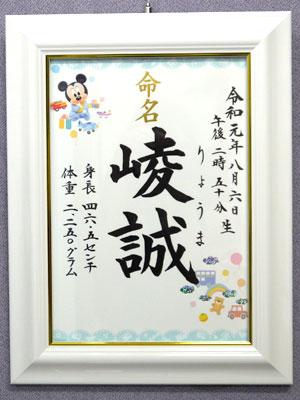 令和元年八月六日生
午後二時五十分
りょうま
命名
崚誠
身長 四六・五センチ
体重 二・二五〇グラム